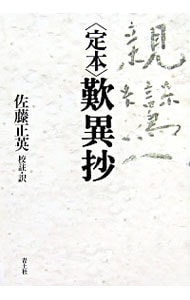 親鸞
〈定本〉歎異抄
佐藤正英
校註・訳
青土社